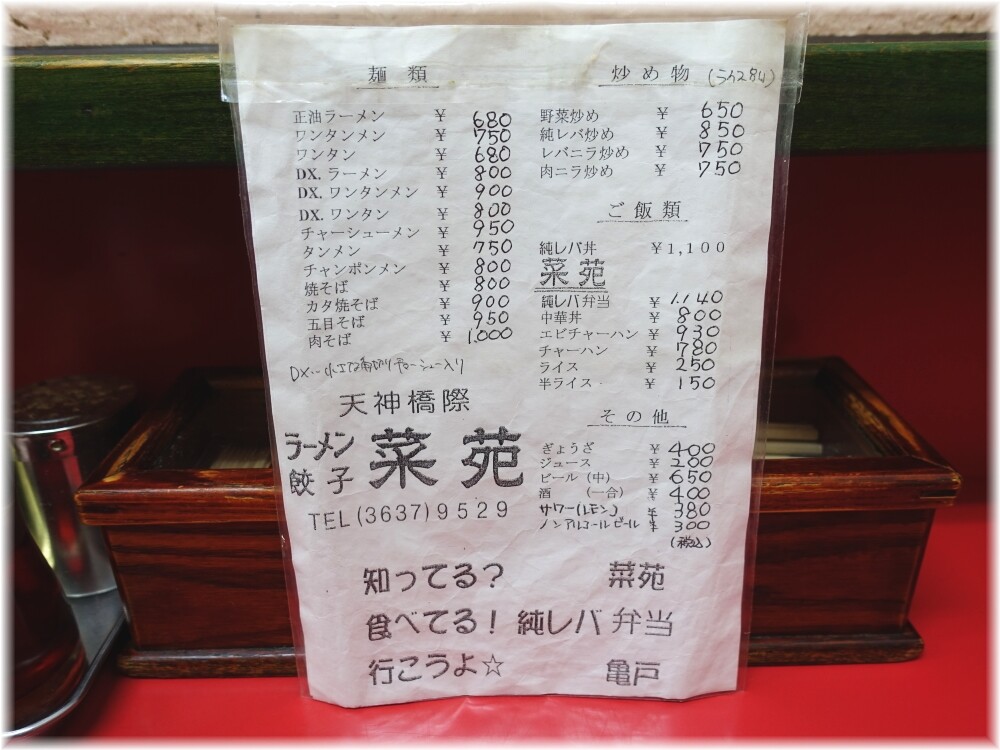 麺類
正油ラーメン ¥ 680
ワンタンメン ¥ 750
ワンタン ¥ 680
DX. ラーメン ¥ 800
DX. ワンタンメン ¥ 900
DX. ワンタン ¥ 800
チャーシューメン ¥ 950
タンメン ¥ 750
チャンポンメン ¥ 800
焼そば ¥ 800
カタ焼そば ¥ 900
五目そば ¥ 950
肉そば ¥ 1,000
DX‥
天神橋際
ラーメン
餃子
菜苑
TEL(3637)9529
炒め物
野菜炒め ¥ 650
純レバ炒め ¥ 850
レバニラ炒め ¥ 750
肉ニラ炒め ¥ 750
ご飯類
純レバ丼 ¥1,100
菜苑
純レバ弁当 ¥ 1,140
中華丼 ¥ 800
エビチャーハン ¥ 930
チャーハン ¥ 780
ライス ¥ 250
半ライス ¥ 150
その他
ぎょうざ ¥ 400
ジュース ¥ 200
ビール (中) ¥ 650
酒 (一合) ¥ 400
サワー(レモン) ¥ 380
ノンアルコールビール ¥ 300
(税込)
知ってる? 菜苑
食べてる! 純レバ弁当
行こうよ☆ 亀戸